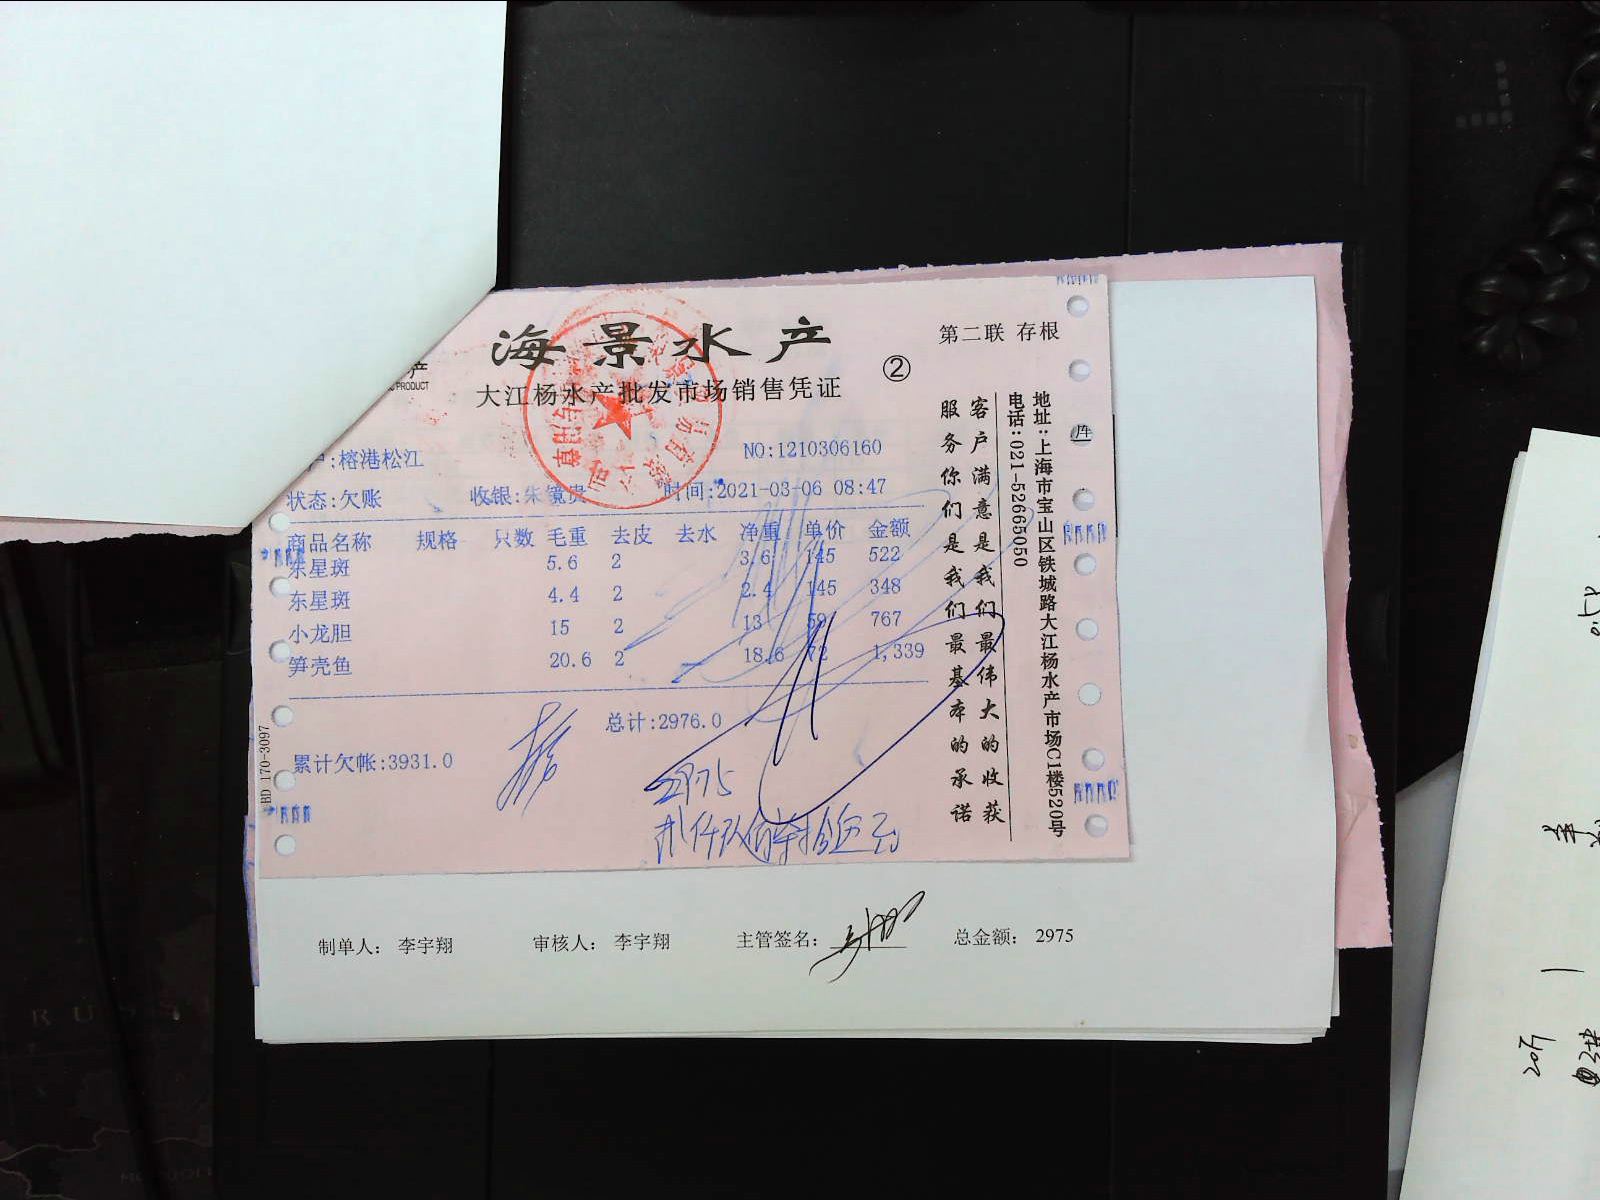 海景水产
大江杨水产批发市场销售凭证
②
第二联 存根
产
PRODUCT
:榕港松江
NO:1210306160
状态:欠账
收银:朱镜贵
时间:2021-03-06 08:47
商品名称 规格 只数 毛重 去皮 去水 净重 单价 金额
东星斑 5.6 2 3.6 145 522
东星斑 4.4 2 2.4 145 348
小龙胆 15 2 13 59 767
笋壳鱼 20.6 2 18.6 72 1,339
总计:2976.0
累计欠帐:3931.0
2975
BD 170-3097
客户满意是我们最伟大的收获
服务你们是我们最基本的承诺
地址:上海市宝山区铁城路大江杨水产市场C1楼520号
电话:021-52665050
制单人: 李宇翔
审核人: 李宇翔
主管签名:
总金额: 2975